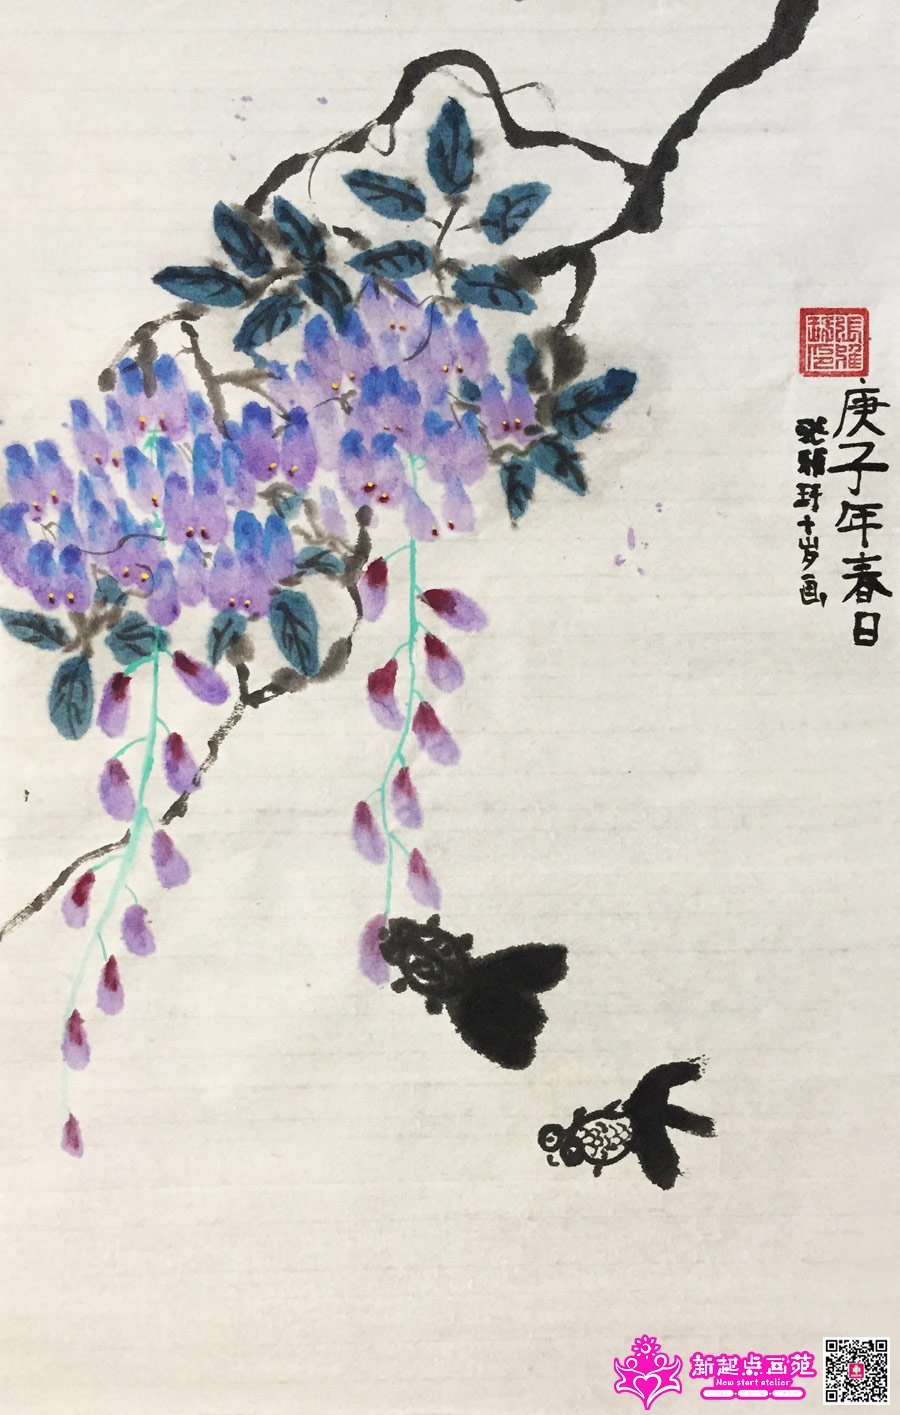 庚子年春日
张雅十岁画
新起点画苑
New start atelier